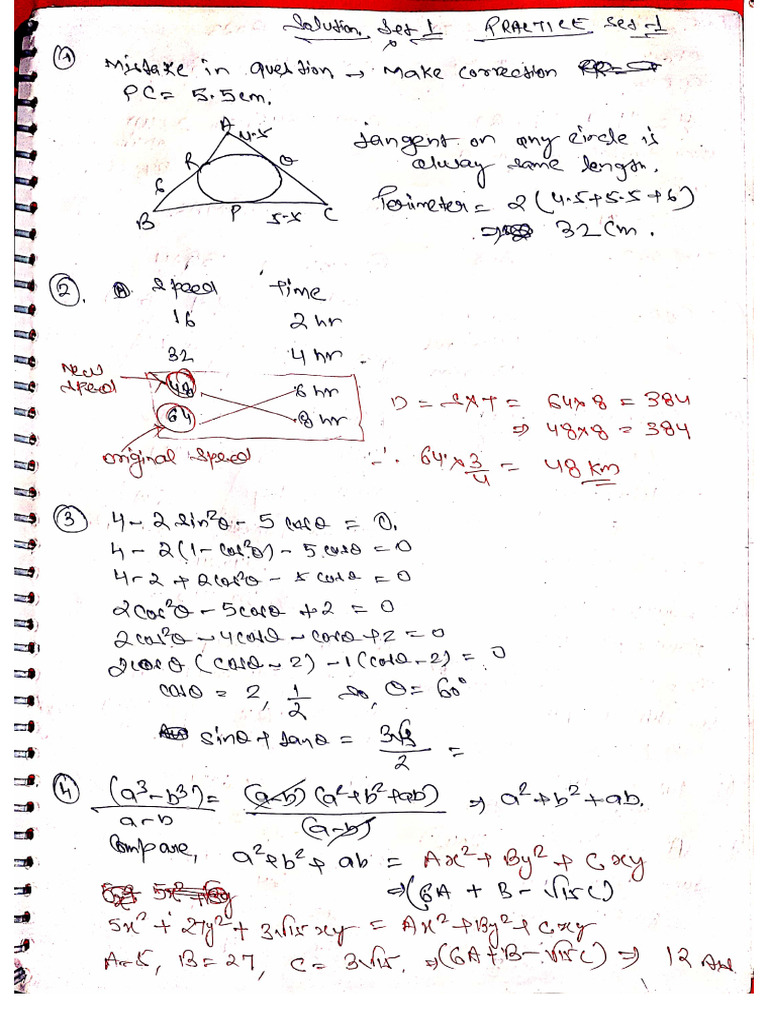 Solution Set 1 PRACTICE Set-1
(1) Mistake in question → Make correction
PC = 5.5cm.
A
4.5
R
Q
6
B
P
5.5
C
Tangent on any circle is
alway same length.
Perimeter = 2(4.5+5.5+6)
⇒ 32 cm.
(2). Speed time
16 2 hr
32 4 hr
New Speed
48 6 hr
64 8 hr
original speed
D = S×T = 64×8 = 384
⇒ 48×8 = 384
∴ 64×3/4 = 48 km
(3) 4 - 2 sin²θ - 5 cosθ = 0.
4 - 2(1 - cos²θ) - 5 cosθ = 0
4 - 2 + 2cos²θ - 5 cosθ = 0
2cos²θ - 5cosθ + 2 = 0
2cos²θ - 4cosθ - cosθ + 2 = 0
2cosθ (cosθ - 2) - 1(cosθ - 2) = 0
cosθ = 2, 1/2 so, θ = 60°
sinθ + tanθ = 3√3/2 =
(4) (a³-b³)/a-b = (a-b)(a²+b²+ab)/(a-b) ⇒ a²+b²+ab.
Compare, a²+b²+ab = Ax²+By²+Cxy
⇒ (6A + B - √15C)
5x² + 27y² + 3√15xy = Ax²+By²+Cxy
A=5, B=27, C=3√15. ⇒ (6A+B-√15C) ⇒ 12 Ans.